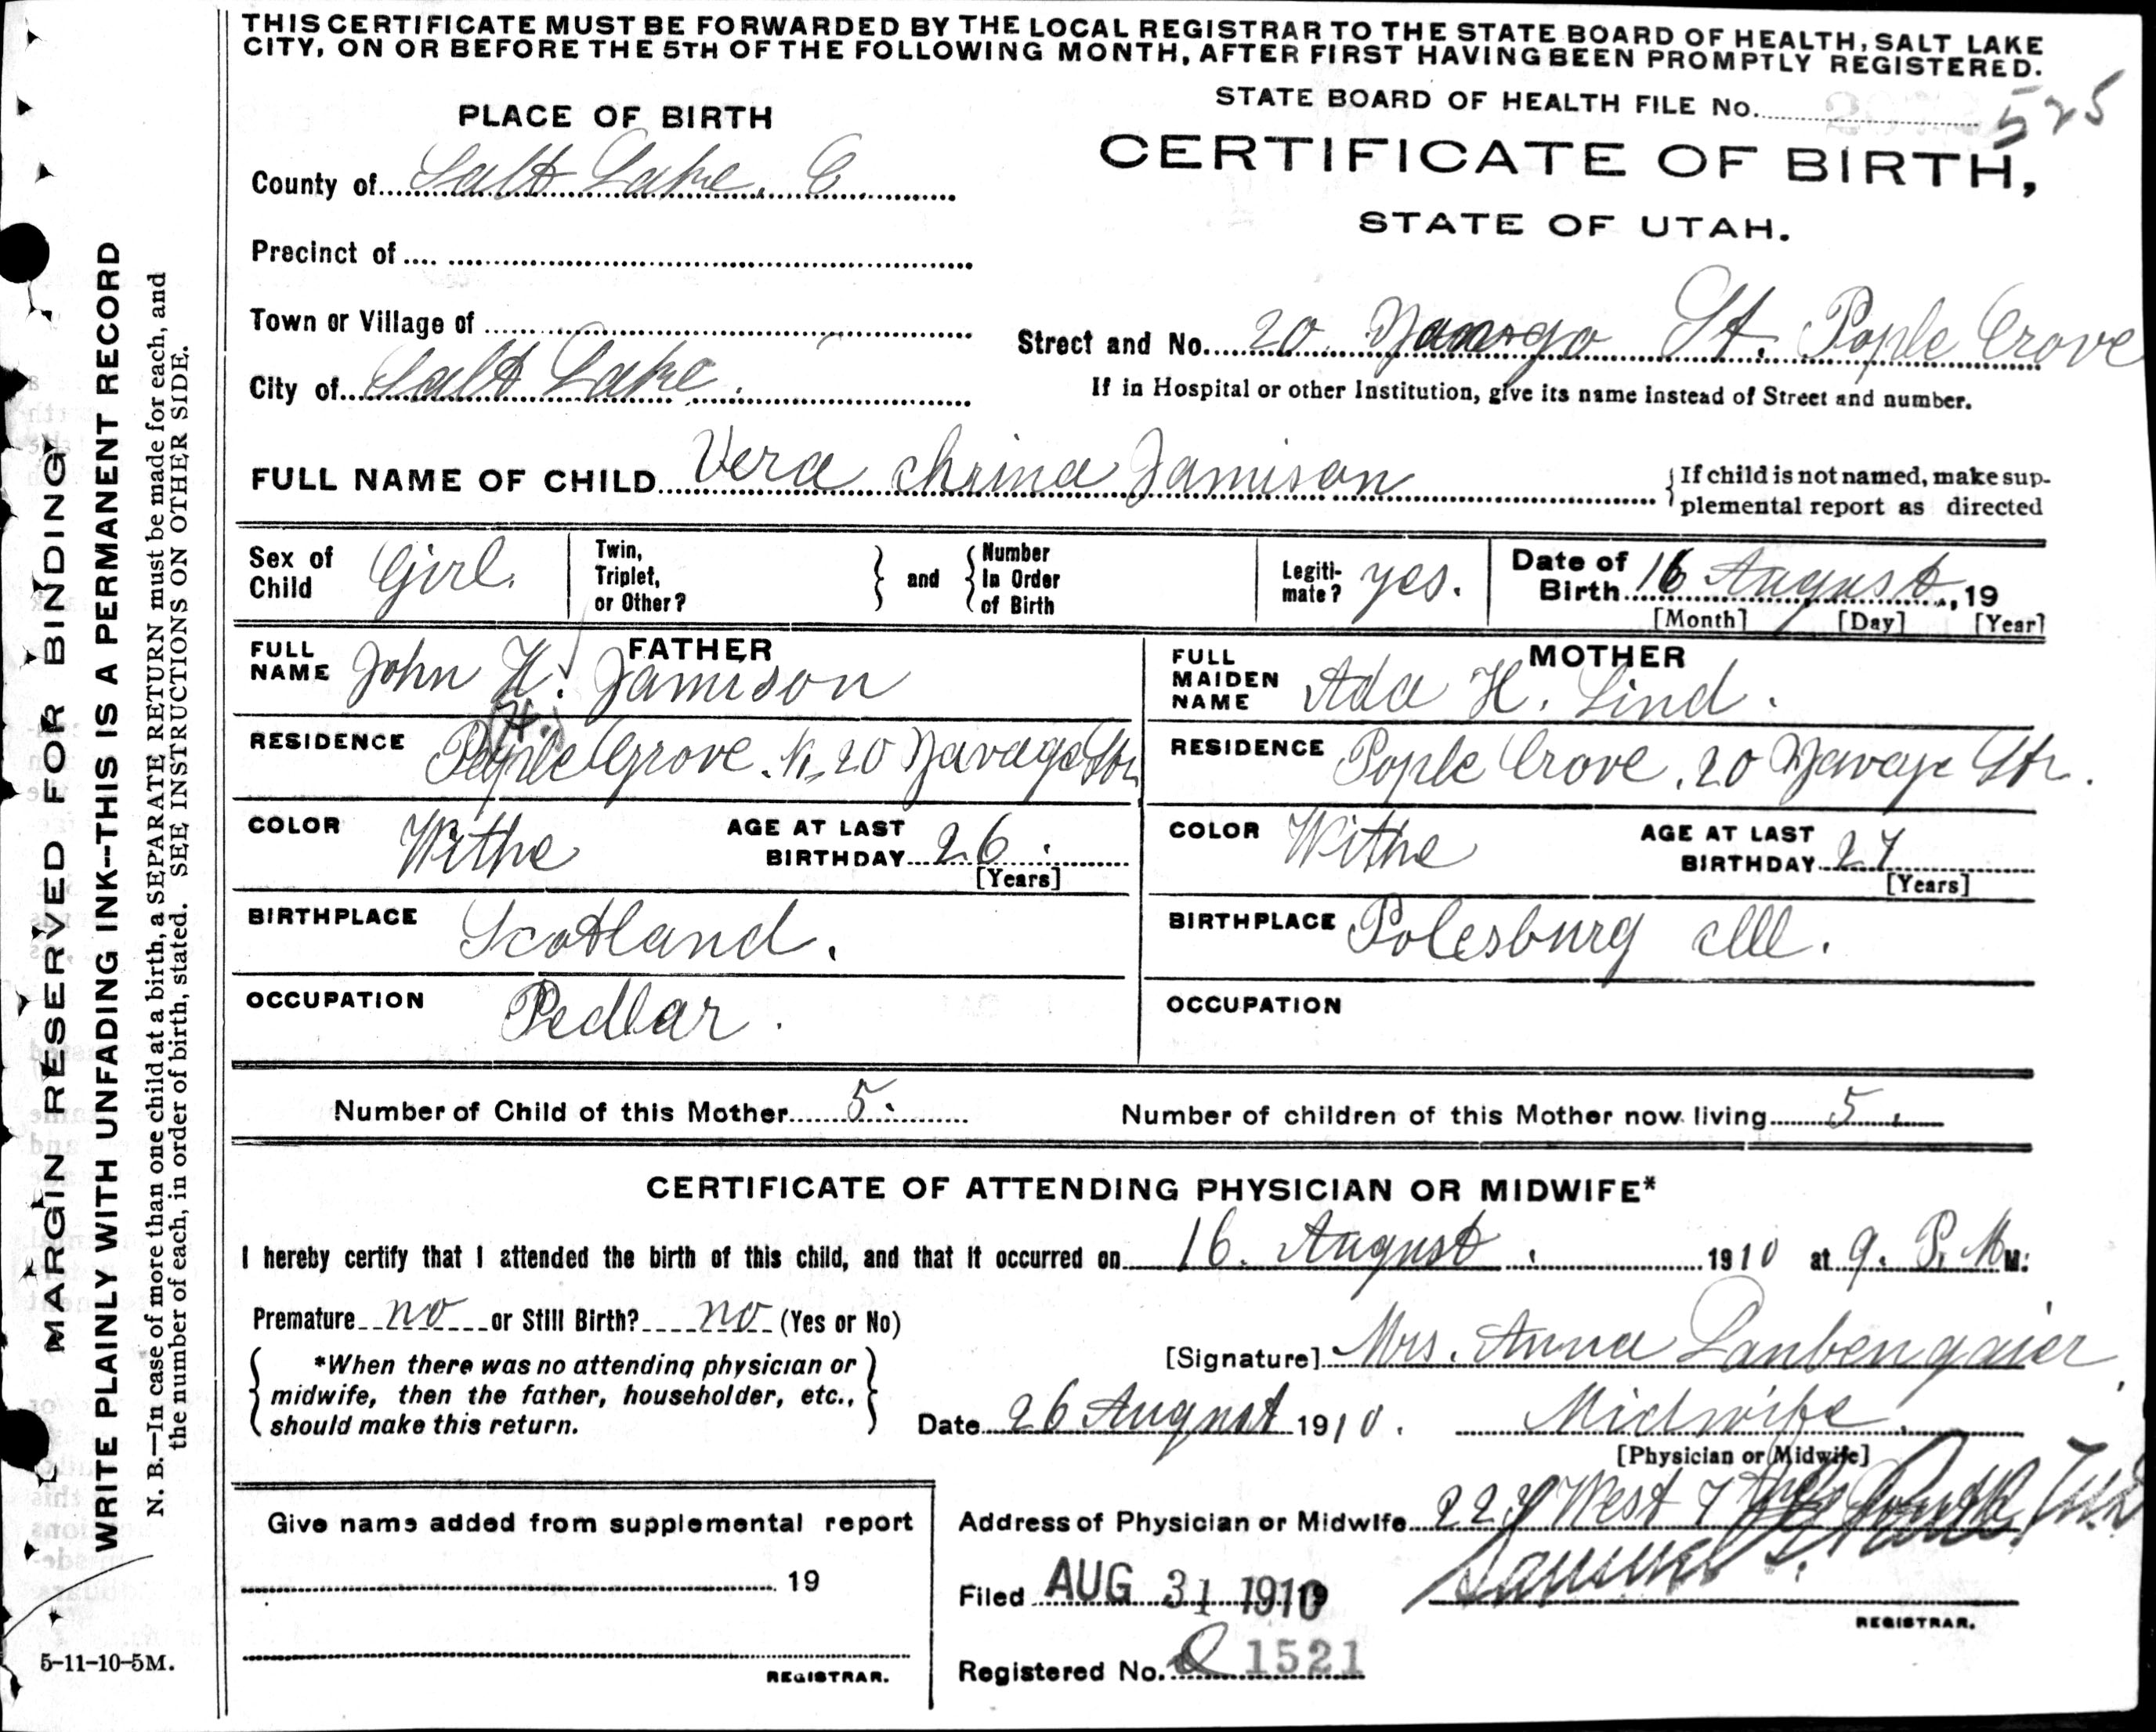 THIS CERTIFICATE MUST BE FORWARDED BY THE LOCAL REGISTRAR TO THE STATE BOARD OF HEALTH, SALT LAKE
CITY, ON OR BEFORE THE 5TH OF THE FOLLOWING MONTH, AFTER FIRST HAVING BEEN PROMPTLY REGISTERED.
STATE BOARD OF HEALTH FILE No. 525
PLACE OF BIRTH
CERTIFICATE OF BIRTH,
STATE OF UTAH.
County of Salt Lake. C
Precinct of
Town or Village of
Street and No. 20 St. Pople Crove
City of Salt Lake.
If in Hospital or other Institution, give its name instead of Street and number.
FULL NAME OF CHILD Vera Chrina Jamison
{If child is not named, make sup-
plemental report as directed
Sex of Child Girl.
Twin, Triplet, or Other?
and
Number In Order of Birth
Legiti-mate? yes.
Date of Birth 16 August, 19
[Month] [Day] [Year]
FATHER
FULL NAME John H. Jamison
(H.)
RESIDENCE Pople Grove. N. 20 Navago Str
COLOR Withe
AGE AT LAST BIRTHDAY 26.
[Years]
BIRTHPLACE Scotland.
OCCUPATION Pedlar.
MOTHER
FULL MAIDEN NAME Ada H. Lind.
RESIDENCE Pople Crove, 20 Str.
COLOR Withe
AGE AT LAST BIRTHDAY 27
[Years]
BIRTHPLACE Polesburg Ill.
OCCUPATION
Number of Child of this Mother 5.
Number of children of this Mother now living 5.
CERTIFICATE OF ATTENDING PHYSICIAN OR MIDWIFE*
I hereby certify that I attended the birth of this child, and that it occurred on 16. August. 1910 at 9. P. M M.
Premature no or Still Birth? no (Yes or No)
*When there was no attending physician or
midwife, then the father, householder, etc.,
should make this return.
[Signature] Mrs. Anna
Date 26 August 1910.
Midwife.
[Physician or Midwife]
Address of Physician or Midwife West 7
Give name added from supplemental report
19
REGISTRAR.
Filed AUG 31 1910
Samuel
REGISTRAR.
Registered No. 1521
MARGIN RESERVED FOR BINDING
WRITE PLAINLY WITH UNFADING INK--THIS IS A PERMANENT RECORD
N. B.—In case of more than one child at a birth, a SEPARATE RETURN must be made for each, and
the number of each, in order of birth, stated. SEE INSTRUCTIONS ON OTHER SIDE.
5-11-10-5M.